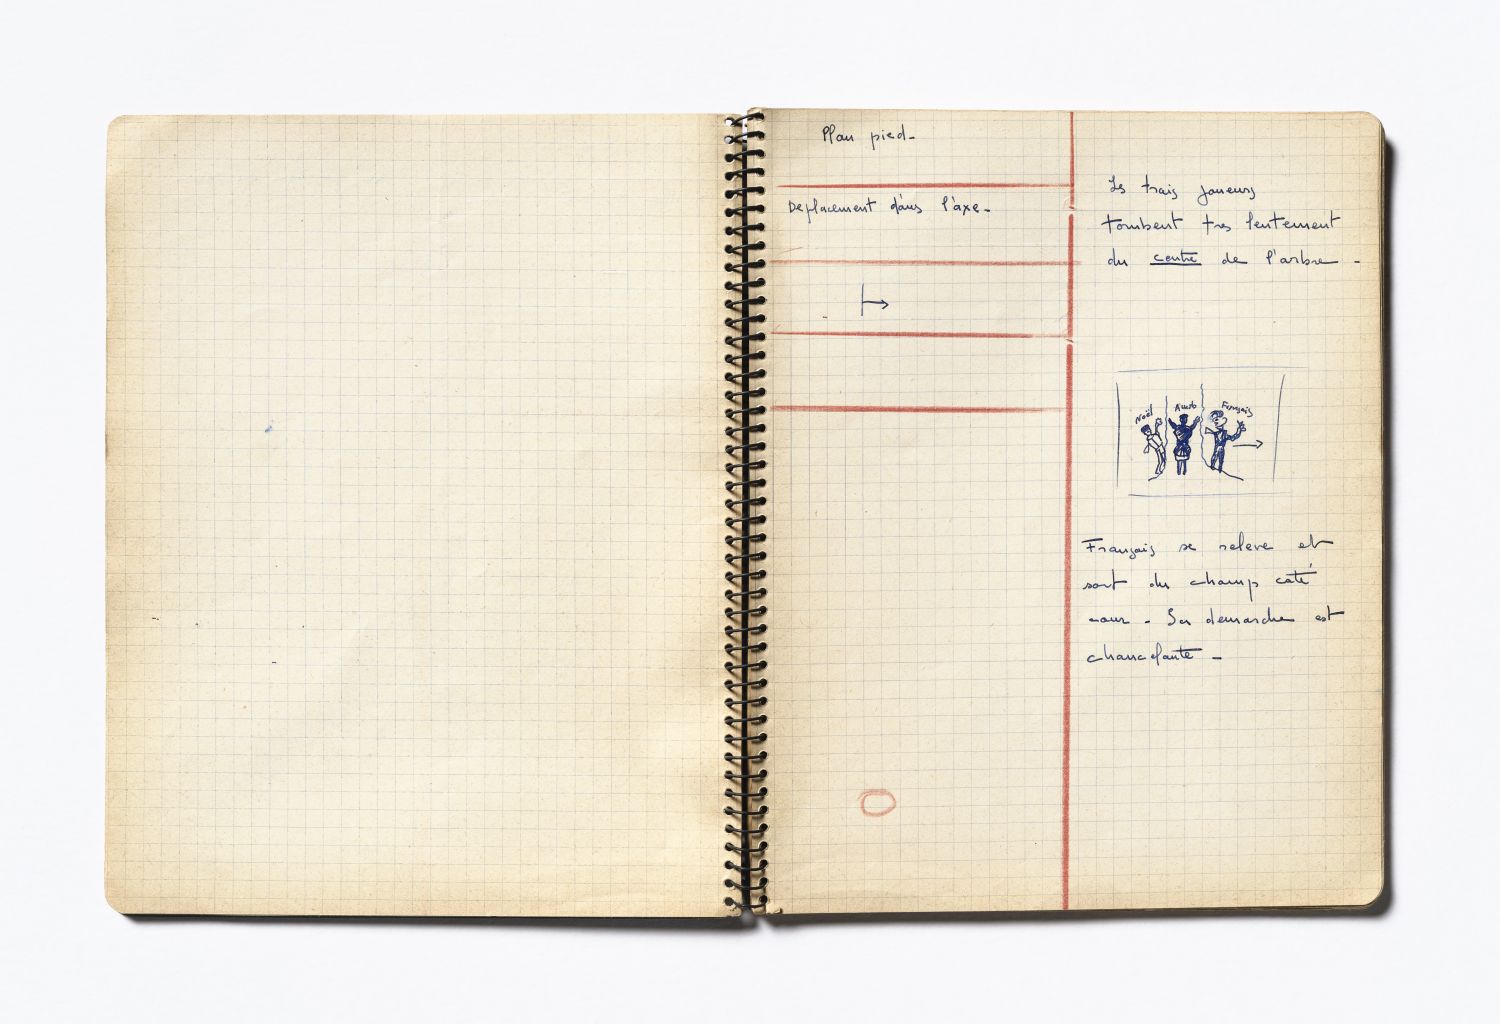 Plan pied-
Deplacement dans l'axe-
Les trois joueurs
tombent tres lentement
du centre de l'arbre -
Noël
François
François se releve et
sort du champ coté
cour - Sa demarche est
chancelante -